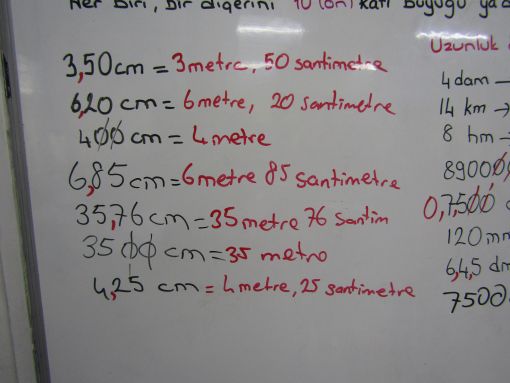 Her biri, bir diğerini 10 (on) katı büyüğü ya
Uzunluk
3,50 cm = 3 metre, 50 santimetre
6,20 cm = 6 metre, 20 santimetre
400 cm = 4 metre
6,85 cm = 6 metre 85 santimetre
35,76 cm = 35 metre 76 santim
3500 cm = 35 metro
4,25 cm = 4 metre, 25 santimetre
4 dam →
14 km →
8 hm →
89000
0,7,500
120 mm
6,4,5 dm
7500